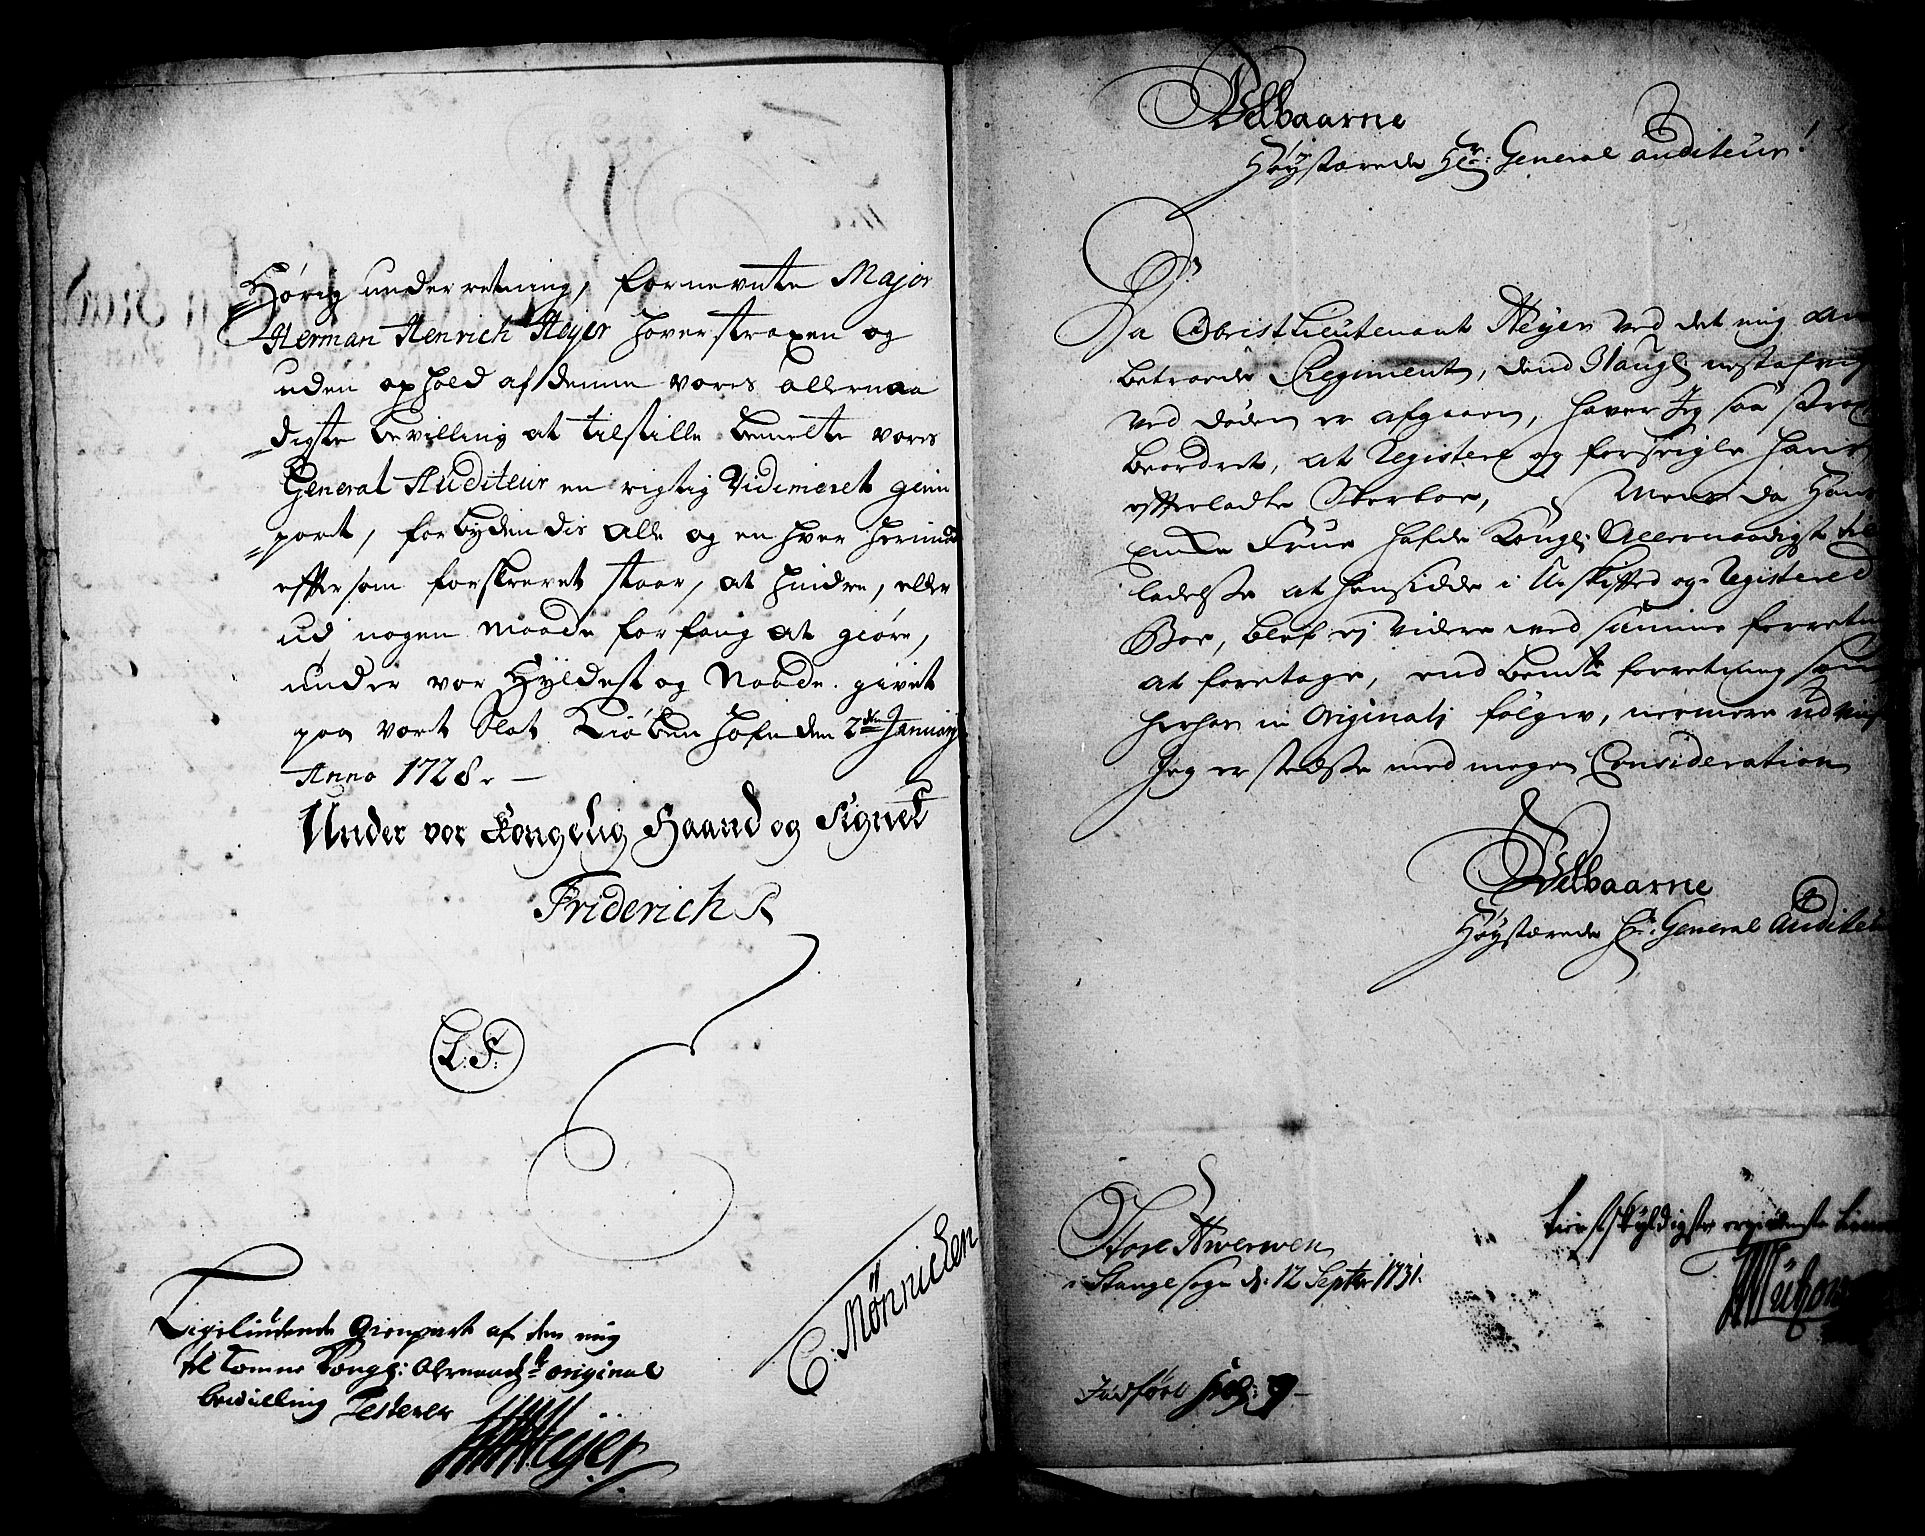 Hörig underretning, fornevnte Major
Herman Henrich Heyer hover straxen og
uden ophold af denne vores allernaa
digste bevilling at tilstille bemelte vores
General Auditeur en rigtig Vidimeret gien
part, forbydendis alle og en hver herimod
efftersom forskrevet staar, at hindre, eller
ud nogen maade forfang at giøre,
under vor Hyldest og Naade. givet
paa vort Slot Kiøbenhafn den 2den Januarij
Anno 1728.
Under vor Kongelig Haand og Signet
Friderich R
L.S.
C: Mönnichen
Ligelüdende Gienpart af den mig
til komne Kongl: Allernaadst original
bevilling Testerer
HHHeyer
Velbaarne
Høystærede Hr: General auditeur!
Da ObristLieutenant Heyer ved det mig an
betroede Regiment, dend 31 Augl nestafvig
ved døden er afgaaen, haver Jeg saa strax
beordret, at Registere og forseigle hans
effterladte Sterboe, Mens da Hans
Encke Frue hafde Kongl: Allernaadigst til
ladelsse at hensidde i Uskifted og Registered
Boe, blef ej videre med samme forretn
at foretage, end bemte forretning som
herhos in Originali følger, nermere udviis
Jeg er stedsse med megen Consideration
Velbaarne
Høystærede Hr: General Auditeur
Store Hverwen
i Stange Sogn d: 12 Septbr 1731.
tienstskyldigste tiener
Indført fol: 9